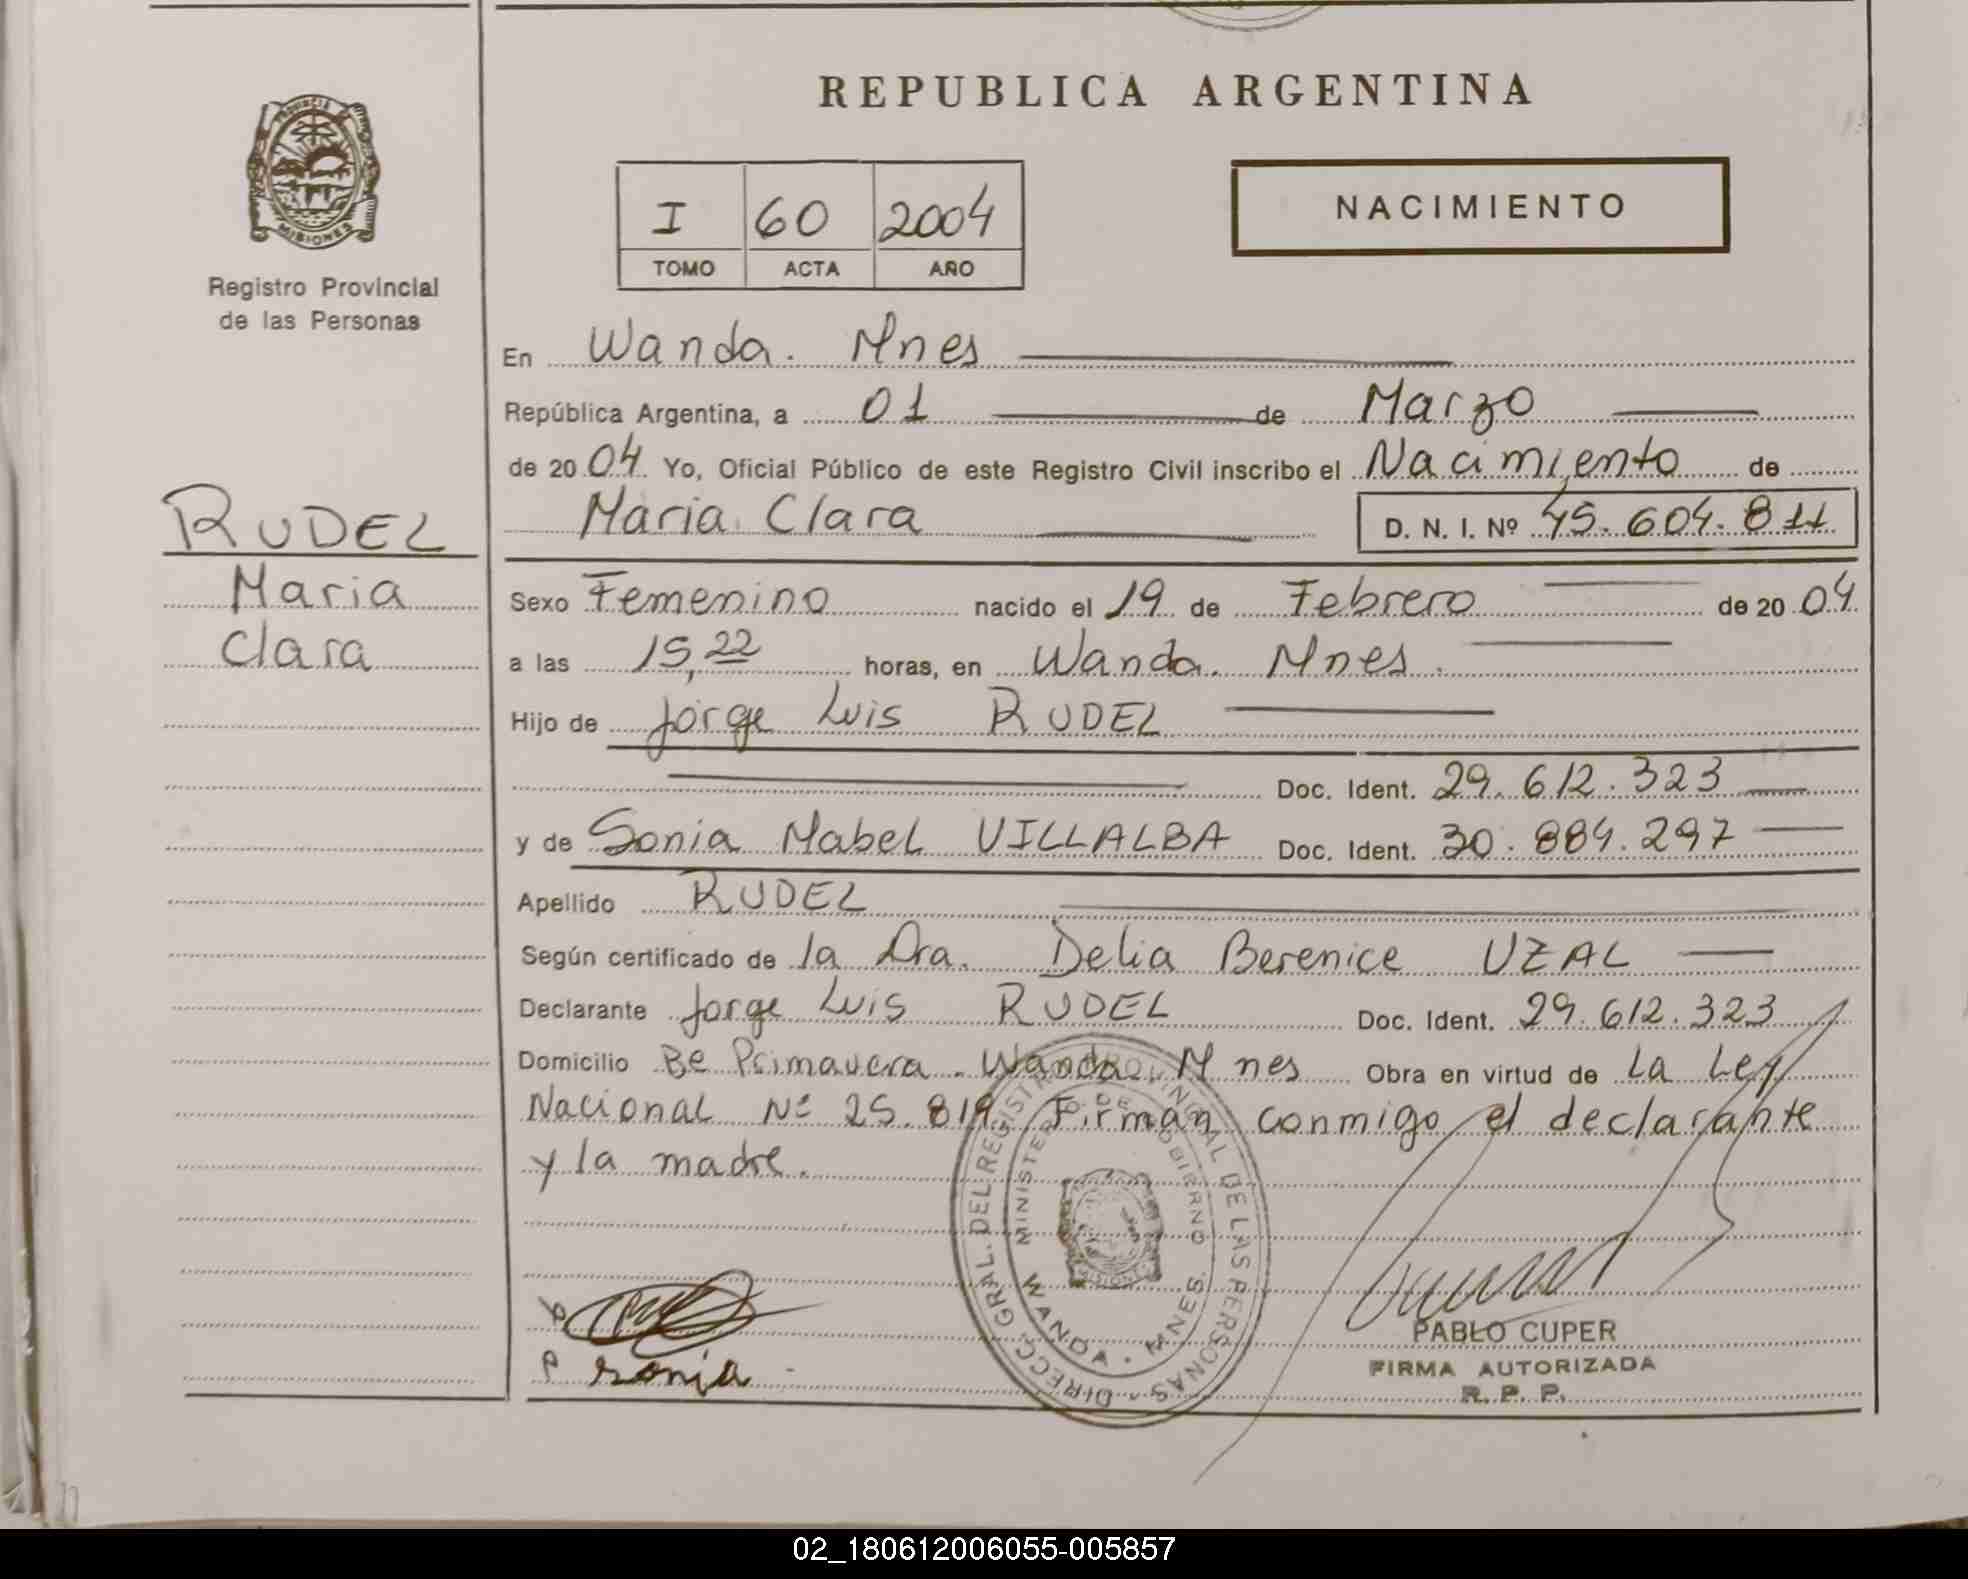 REPUBLICA ARGENTINA
PROVINCIA
MISIONES
Registro Provincial
de las Personas
I 60 2004
TOMO ACTA AÑO
NACIMIENTO
En Wanda. Mnes
República Argentina, a 01 de Marzo
de 20 04 Yo, Oficial Público de este Registro Civil inscribo el Nacimiento de
Maria Clara D. N. I. Nº 45.604.811
RUDEL
Maria
Clara
Sexo Femenino nacido el 19 de Febrero de 20 04
a las 15,22 horas, en Wanda. Mnes.
Hijo de Jorge Luis RUDEL
Doc. Ident. 29.612.323
y de Sonia Mabel VILLALBA Doc. Ident. 30.884.297
Apellido RUDEL
Según certificado de la Dra. Delia Berenice UZAL
Declarante Jorge Luis RUDEL Doc. Ident. 29.612.323
Domicilio Be Primavera. Wanda. Mnes Obra en virtud de La Ley
Nacional Nº 25.819. Firman conmigo el declarante
y la madre.
DIRECC. GRAL. DEL REGISTRO PROVINCIAL DE LAS PERSONAS
MINISTERIO DE GOBIERNO
WANDA - MNES.
sonia
PABLO CUPER
FIRMA AUTORIZADA
R. P. P.
02_180612006055-005857